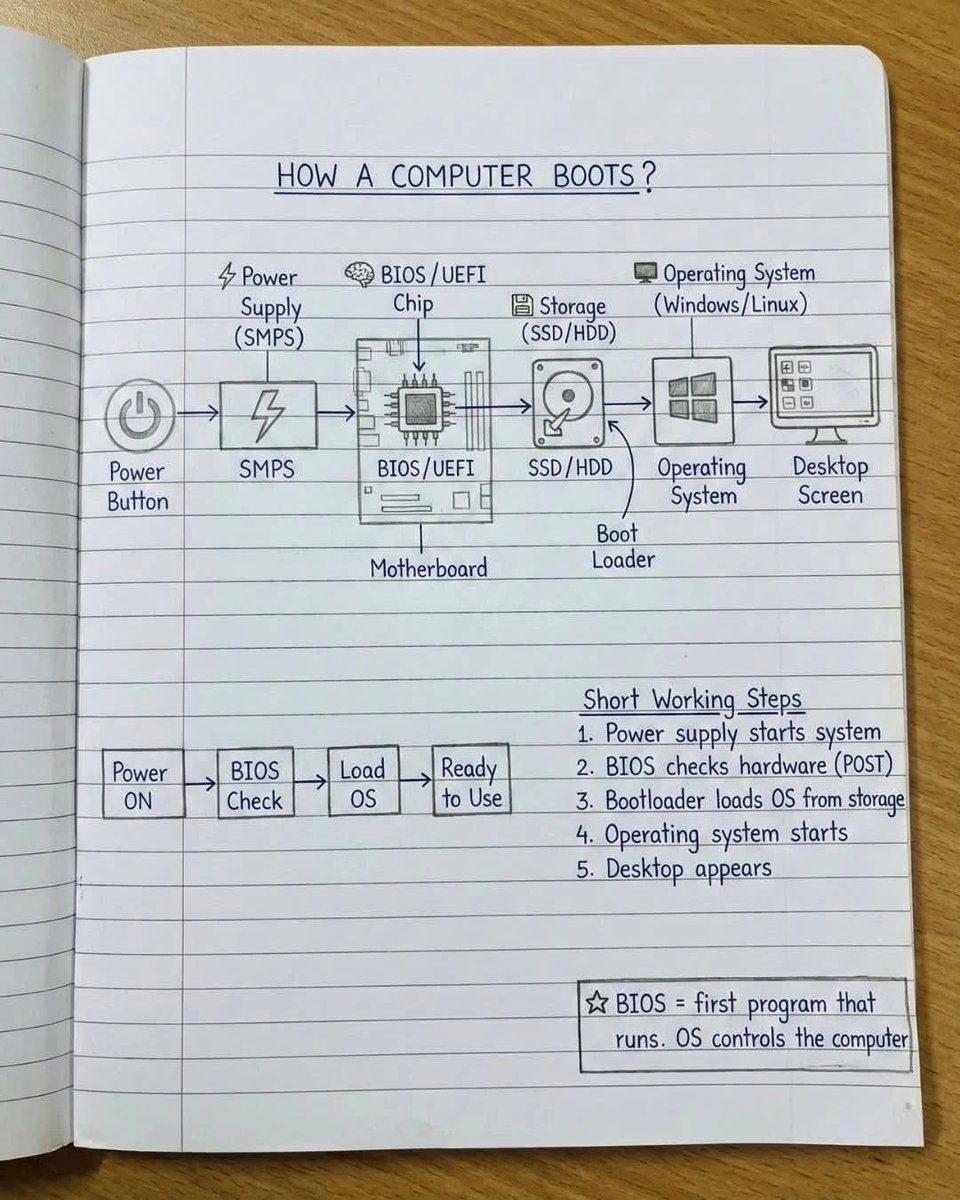 HOW A COMPUTER BOOTS?
Power
Supply
(SMPS)
BIOS/UEFI
Chip
Storage
(SSD/HDD)
Operating System
(Windows/Linux)
Power
Button
SMPS
BIOS/UEFI
SSD/HDD
Operating
System
Desktop
Screen
Boot
Loader
Motherboard
Power
ON
BIOS
Check
Load
OS
Ready
to Use
Short Working Steps
1. Power supply starts system
2. BIOS checks hardware (POST)
3. Bootloader loads OS from storage
4. Operating system starts
5. Desktop appears
☆ BIOS = first program that
runs. OS controls the computer